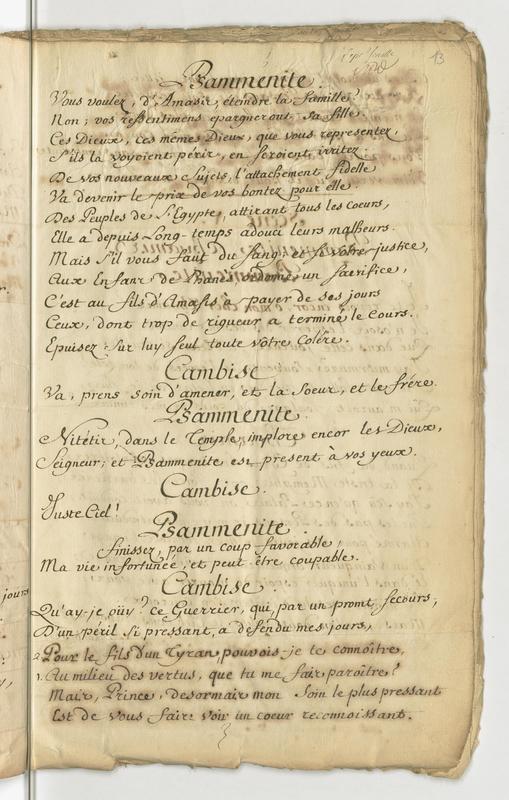 13
Psammenite
Vous voulez, d'Amasis, éteindre la famille?
Non; vos ressentimens epargneront sa fille.
Ces Dieux, ces mêmes Dieux, que vous representez,
S'ils la voyoient périr, en seroient irritez.
De vos nouveaux Sujets, l'attachement fidelle
Va devenir le prix de vos bontez pour elle.
Des Peuples de l'Egypte, attirant tous les coeurs,
Elle a depuis Long-temps adouci leurs malheurs.
Mais s'il vous faut du sang, et si votre justice,
Aux Enfans de Phanés ordonne un sacrifice,
C'est au fils d'Amasis à payer de ses jours
Ceux, dont trop de rigueur a terminé le cours.
Epuisez sur luy seul toute votre Colére.
Cambise
Va, prens soin d'amener, et la Soeur, et le frére.
Psammenite.
Nitétis, dans le Temple, implore encor les Dieux,
Seigneur; et Psammenite est present à vos yeux.
Cambise.
Juste Ciel!
Psammenite.
finissez, par un coup favorable,
Ma vie infortunée, et peut être coupable.
Cambise.
Qu'ay-je oüy? ce Guerrier, qui, par un promt secours,
D'un péril si pressant, a défendu mes jours,
2. Pour le fils d'un Tyran, pouvois-je te connoître,
1. Au milieu des vertus, que tu me fais paroître?
Mais, Prince, desormais mon soin le plus pressant
Est de vous faire voir un coeur reconnoissant.